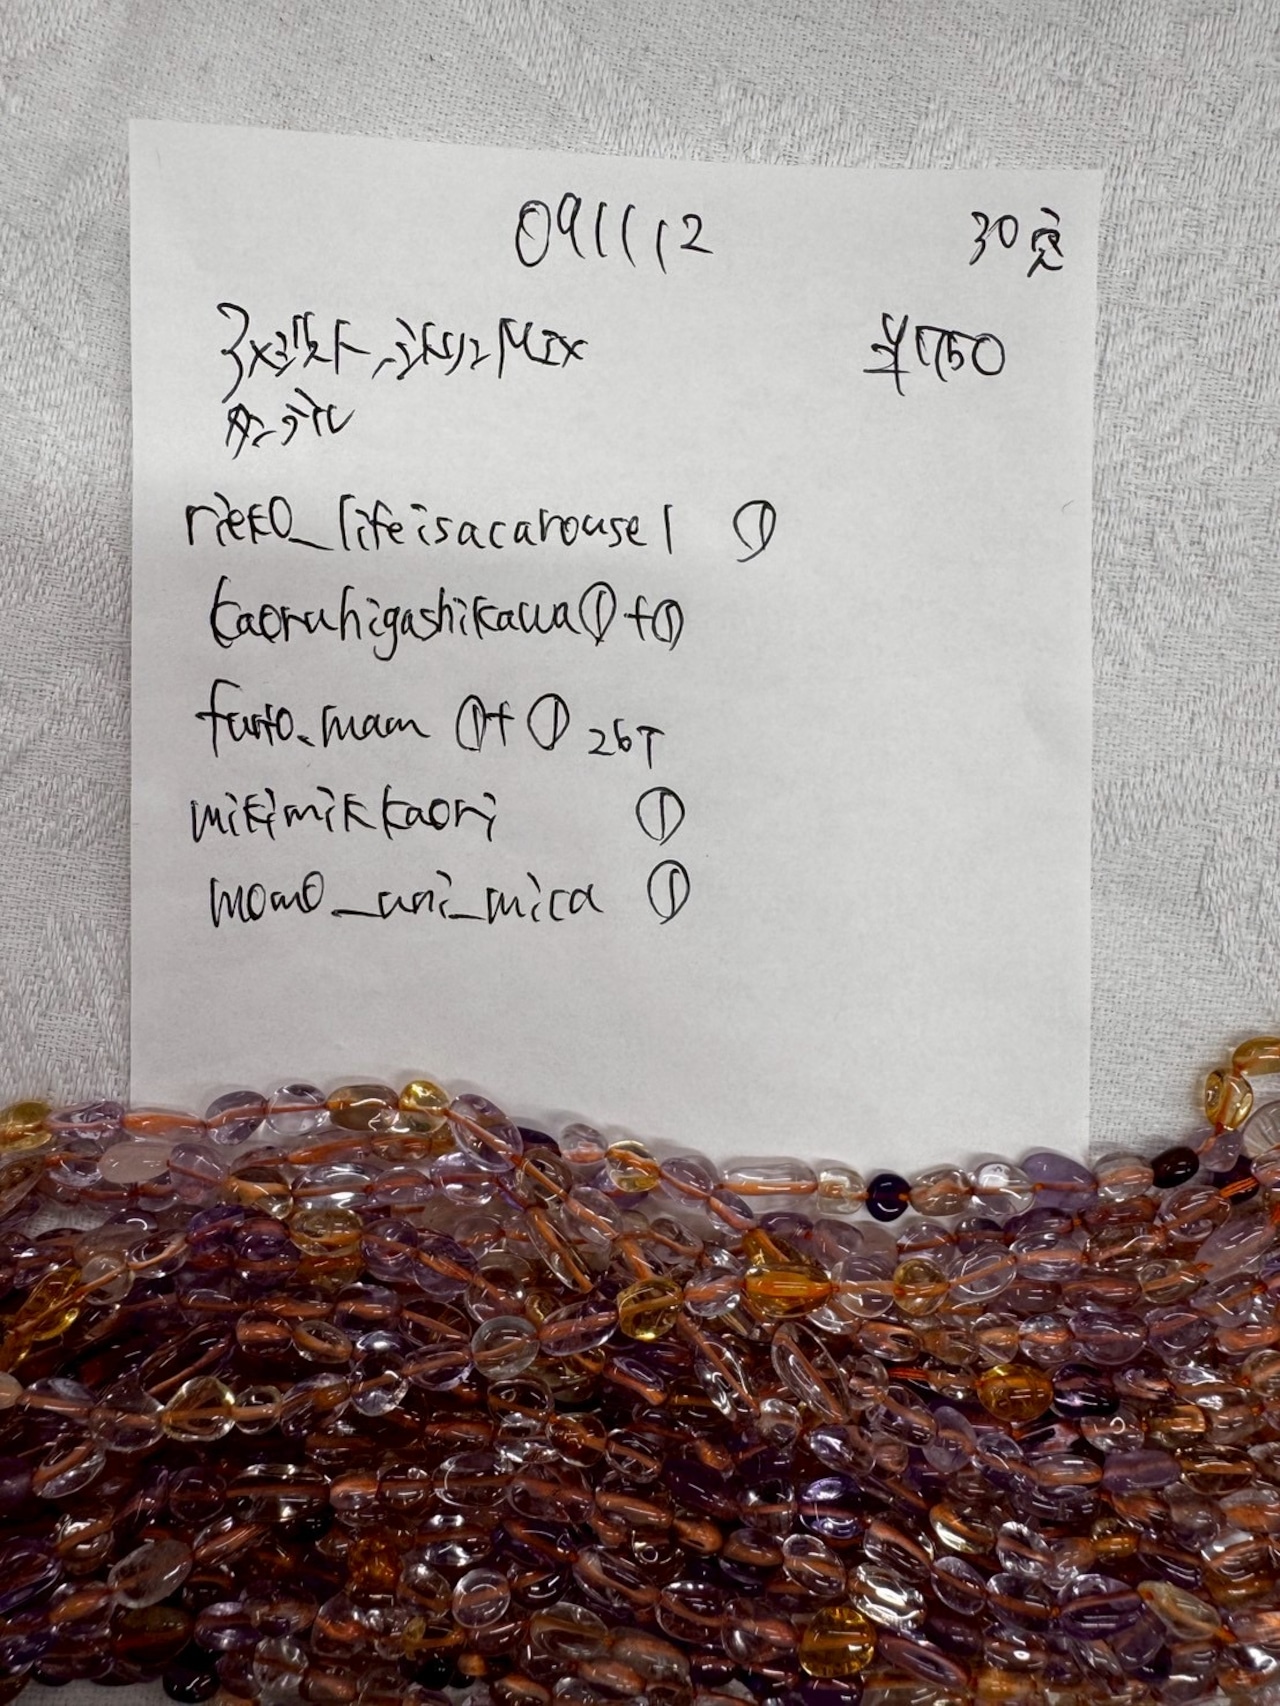 091112 30完
アメジスト、シトリンMIX ¥1750
タンブル
rieko_lifeisacarousel ①
kaoruhigashikawa①+①
futo.mam ①+① 26T
mikimikkaori ①
momo_uni_mica ①